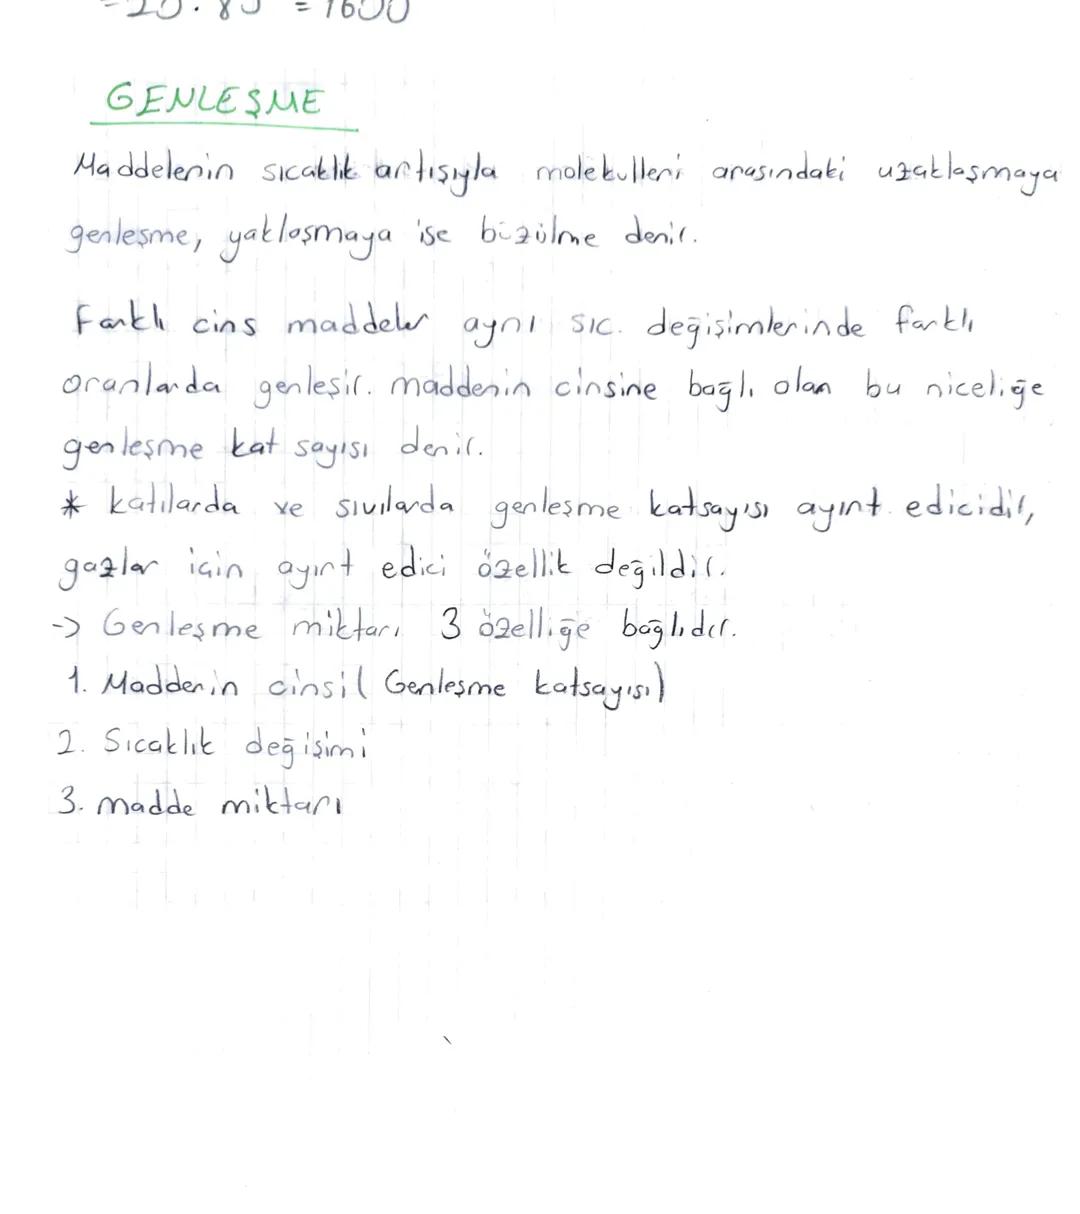 = 1600
GENLEŞME
Maddelerin sıcaklık artışıyla molekülleri arasındaki uzaklaşmaya
genleşme, yaklaşmaya ise büzülme denir.
Farklı cins maddeler aynı sıc. değişimlerinde farklı
oranlarda genleşir. maddenin cinsine bağlı olan bu niceliğe
genleşme kat sayısı denir.
* katılarda ve sıvılarda genleşme katsayısı ayırt edicidir,
gazlar için ayırt edici özellik değildir.
-> Genleşme miktarı 3 özelliğe bağlıdır.
1. Maddenin cinsi( Genleşme katsayısı)
2. Sıcaklık değişimi
3. madde miktarı